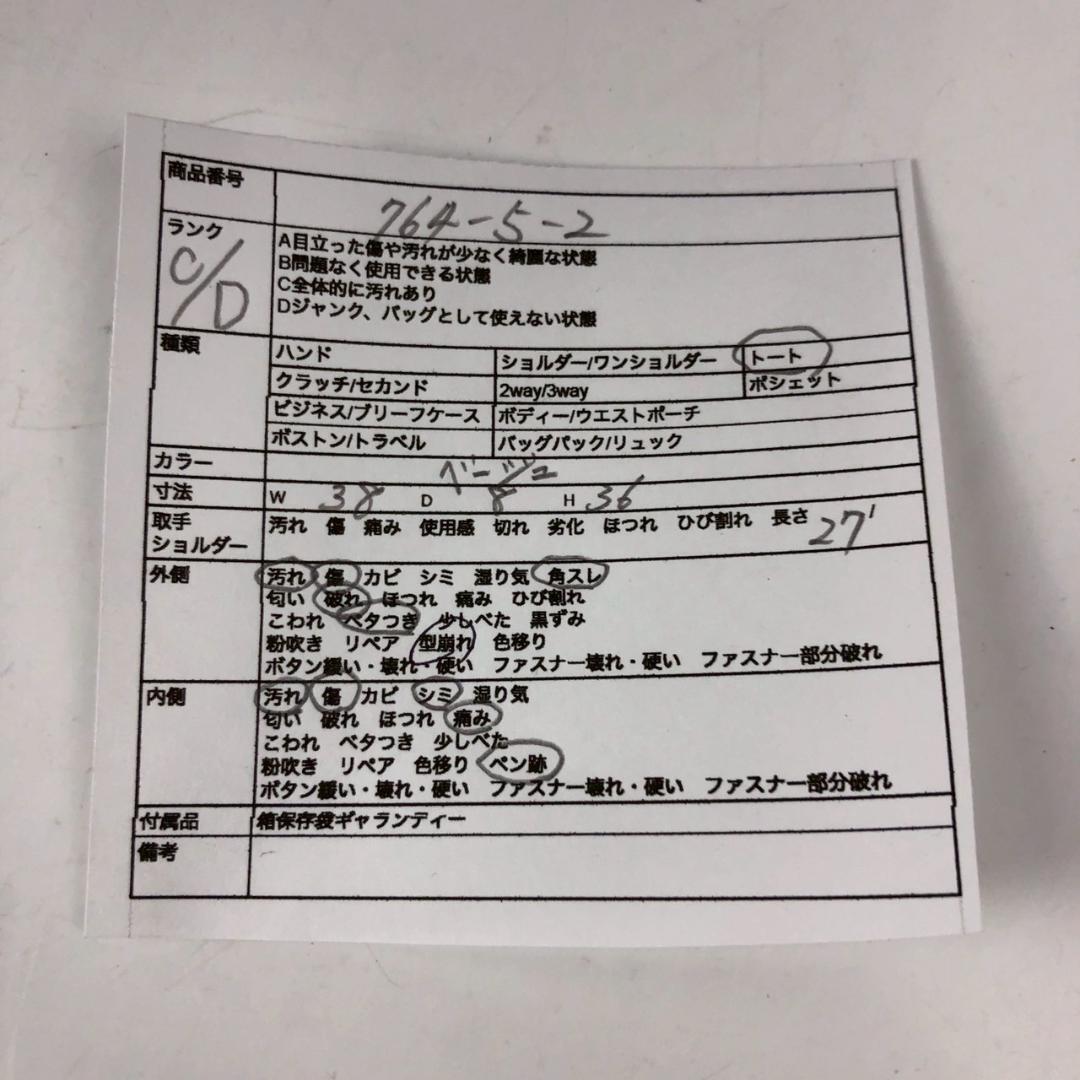 商品番号 764-5-2
ランク C/D
A目立った傷や汚れが少なく綺麗な状態
B問題なく使用できる状態
C全体的に汚れあり
Dジャンク、バッグとして使えない状態
種類 ハンド ショルダー/ワンショルダー トート
クラッチ/セカンド 2way/3way ポシェット
ビジネス/ブリーフケース ボディー/ウエストポーチ
ボストン/トラベル バッグパック/リュック
カラー ベージュ
寸法 W 38 D 8 H 36
取手 汚れ 傷 痛み 使用感 切れ 劣化 ほつれ ひび割れ 長さ 27'
ショルダー
外側 汚れ 傷 カビ シミ 湿り気 角スレ
匂い 破れ ほつれ 痛み ひび割れ
こわれ ベタつき 少しべた 黒ずみ
粉吹き リペア 型崩れ 色移り
ボタン緩い・壊れ・硬い ファスナー壊れ・硬い ファスナー部分破れ
内側 汚れ 傷 カビ シミ 湿り気
匂い 破れ ほつれ 痛み
こわれ ベタつき 少しべた
粉吹き リペア 色移り ペン跡
ボタン緩い・壊れ・硬い ファスナー壊れ・硬い ファスナー部分破れ
付属品 箱保存袋ギャランティー
備考